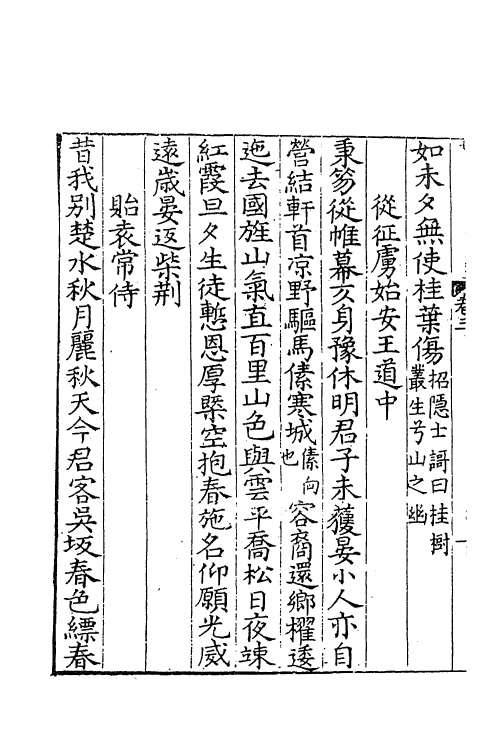 如未夕無使桂葉傷招隱士謌曰桂樹叢生兮山之幽
從征虜始安王道中
秉笏從帷幕交身豫休明君子未獲晏小人亦自
營結軒首凉野驅馬傃寒城傃向也容裔還鄉櫂逶
迤去國旌山氣直百里山色與雲平喬松日夜竦
紅霞旦夕生徒慙恩厚槩空抱春施名仰願光威
遠歲晏返柴荆
貽袁常侍
昔我別楚水秋月麗秋天今君客吳坂春色縹春